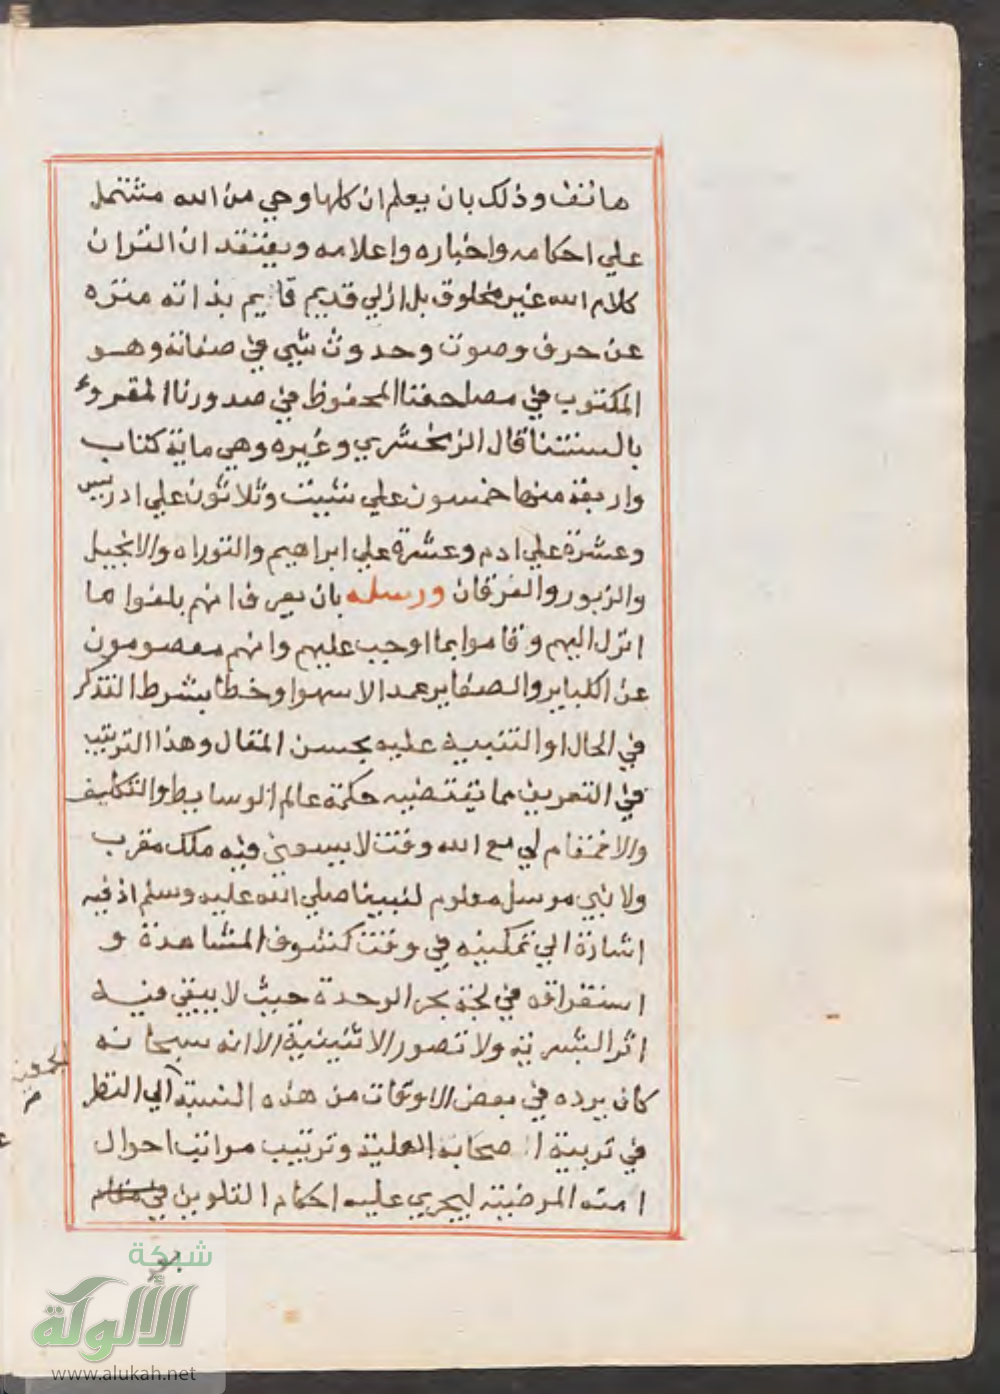 هاتف وذلك بان يعلم ان كلها وحي من الله مشتمل
علي احكامه واخباره واعلامه ويعتقد ان القران
كلام الله غير مخلوق بل ازلي قديم قايم بذاته منزه
عن حرف وصوت وحدوث شي في صفاته وهو
المكتوب في مصاحفنا المحفوظ في صدورنا المقروء
بالسنتنا قال الزمخشري وغيره وهي ماية كتاب
واربعة منها خمسون علي شيث وثلاثون علي ادريس
وعشرة علي ادم وعشرة علي ابراهيم والتوراه والانجيل
والزبور والفرقان ورسله بان يعرف انهم بلغوا ما
انزل اليهم وقاموا بما اوجب عليهم وانهم معصومون
عن الكباير والصغاير عمدا لا سهوا وخطأ بشرط التذكر
في الحال او التنبيه عليه بحسن المقال وهذا الترتيب
في التعريف مما يقتضيه حكمة عالم الوسايط والتكليف
والا فمقام لي مع الله وقت لا يسعني فيه ملك مقرب
ولا نبي مرسل معلوم لنبينا صلي الله عليه وسلم اذ فيه
اشارة الي تمكينه في وقت كشوف المشاهدة و
استغراقه في لجة بحر الوحدة حيث لا يبقي فيه
اثر البشرية ولا تصور الاثنينية الا انه سبحانه
كان يرده في بعض الاوقات من هذه النسبة الي النظر
في تربية اصحابه العلية وترتيب مراتب احوال
امته المرضية ليجري عليه احكام التلوين في مقام
شبكة
الألوكة
www.alukah.net